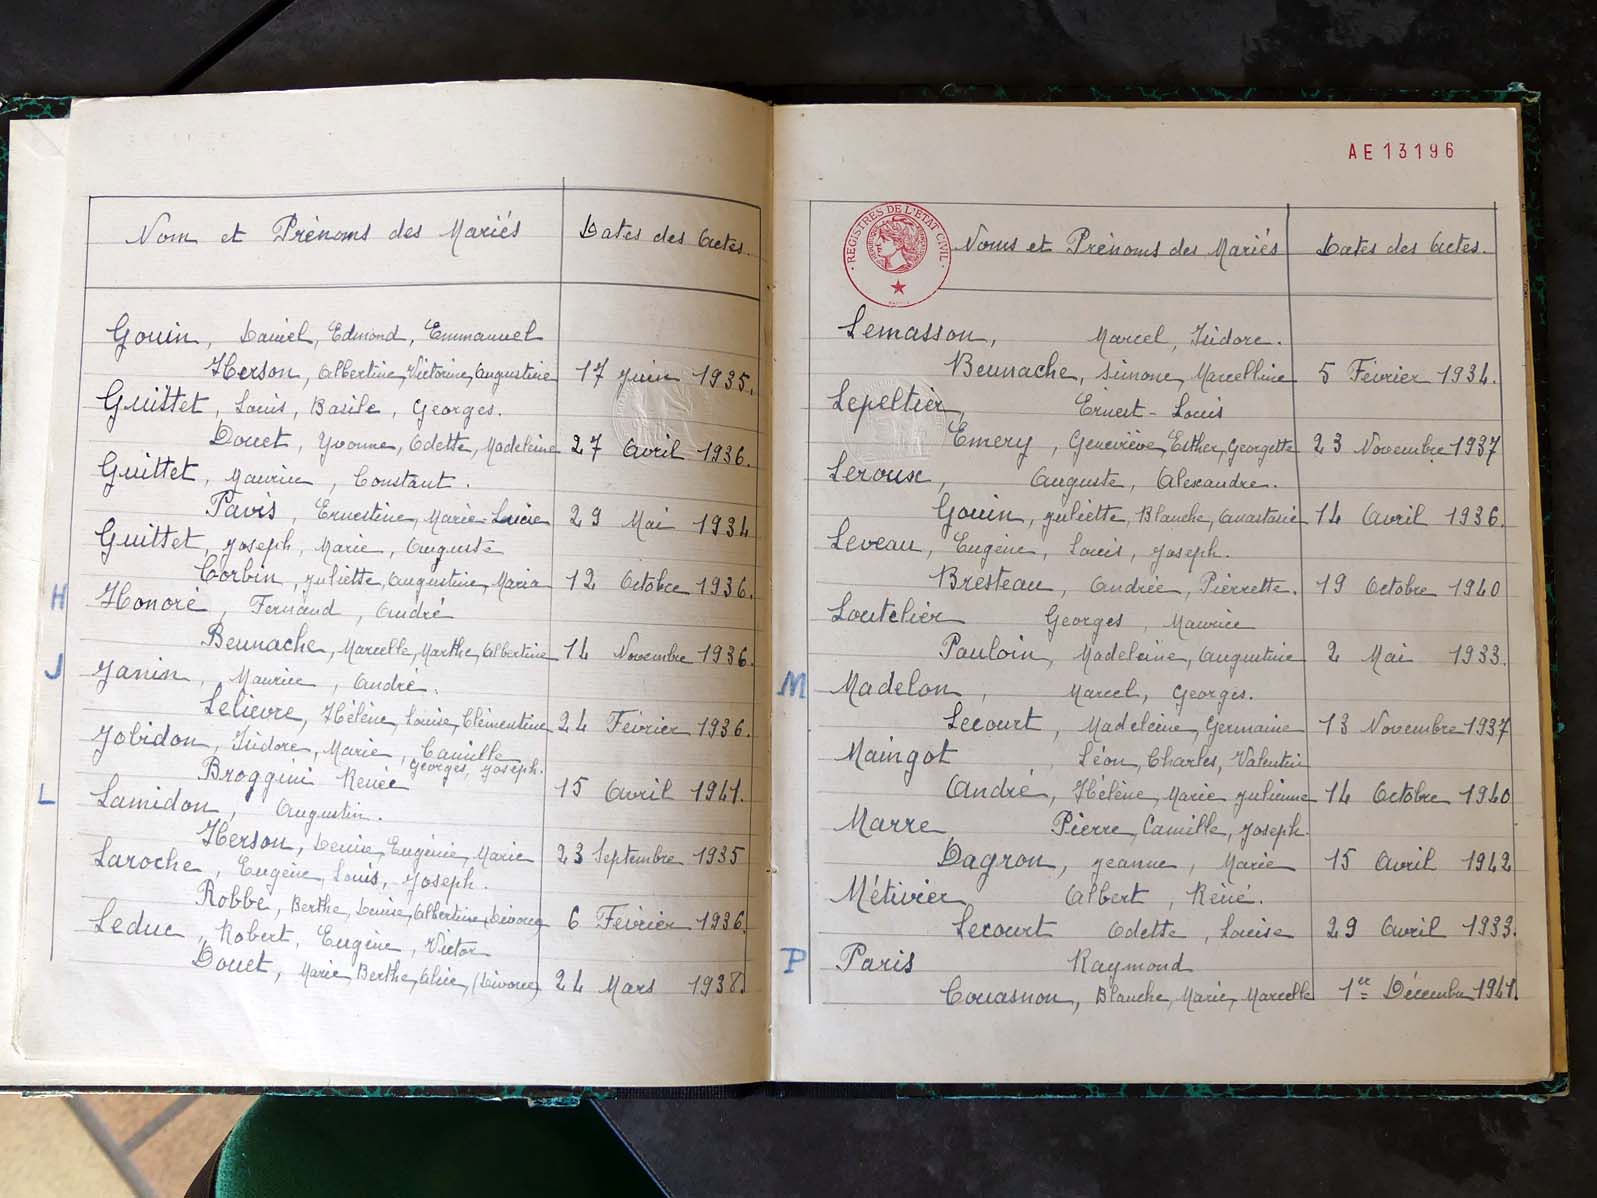 Nom et Prénoms des Mariés Dates des Actes.
Gouin, Daniel, Edmond, Emmanuel
Herson, Albertine, Victorine, Augustine 17 Juin 1935.
Guittet, Louis, Basile, Georges.
Douet, Yvonne, Odette, Madeleine 27 Avril 1936.
Guittet, Maurice, Constant.
Pavis, Ernestine, Marie-Lucie 29 Mai 1934
Guittet, Joseph, Marie, Auguste
Corbin, Juliette, Augustine, Maria 12 Octobre 1936.
H
Honoré, Fernand, André
Beunache, Marcelle, Marthe, Albertine 14 Novembre 1936.
J
Janin, Maurice, André.
Lelièvre, Hélène, Louise, Clémentine 24 Février 1936.
Jobidon, Isidore, Marie, Camille
Georges, Joseph.
Broggini Renée 15 Avril 1941.
L
Lamidon, Augustin.
Herson, Denise, Eugénie, Marie 23 Septembre 1935
Laroche, Eugène, Louis, Joseph.
Robbe, Berthe, Denise, Albertine, Divorcée 6 Février 1936.
Leduc, Robert, Eugène, Victor
Douet, Marie, Berthe, Alice, (Divorcée) 24 Mars 1938.
AE 13196
REGISTRES DE L'ETAT CIVIL
Noms et Prénoms des Mariés Dates des Actes.
Lemasson, Marcel, Isidore.
Beunache, Simone, Marcelline 5 Février 1934.
Lepeltier, Ernest-Louis
Emery, Geneviève, Esther, Georgette 23 Novembre 1937
Leroux, Auguste, Alexandre.
Gouin, Juliette, Blanche, Anastasie 14 Avril 1936.
Leveau, Eugène, Louis, Joseph.
Bresteau, Andrée, Pierrette. 19 Octobre 1940
Loutelier Georges, Maurice
Pauloin, Madeleine, Augustine 2 Mai 1933.
M
Madelon, Marcel, Georges.
Lecourt, Madeleine, Germaine 13 Novembre 1937
Maingot, Léon, Charles, Valentin
André, Hélène, Marie Julienne 14 Octobre 1940
Marre Pierre, Camille, Joseph.
Dagron, Jeanne, Marie 15 Avril 1942
Métivier Albert, Réné.
Lecourt Odette, Louise 29 Avril 1933.
P
Paris Raymond
Couasnon, Blanche, Marie, Marcelle 1er Décembre 1941.